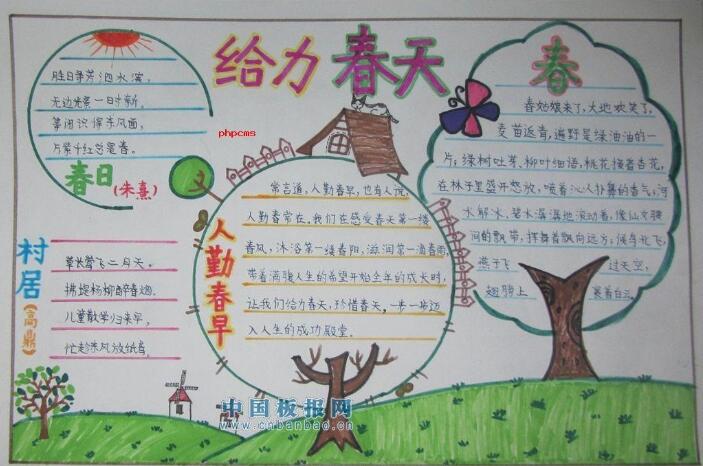 给力 春天
phpcms
胜日寻芳泗水滨,
无边光景一日时新。
等闲识得东风面,
万紫千红总是春。
春日
(朱熹)
村居
(高鼎)
草长莺飞二月天。
拂堤杨柳醉春烟。
儿童散学归来早,
忙趁东风放纸鸢。
人勤春早
常言道,人勤春早,也有人说,
人勤春常在。我们在感受春天第一缕
春风,沐浴第一缕春阳,滋润第一滴春雨,
带着满载人生的希望开始全年的成长时,
让我们给力春天,珍惜春天。一步一步迈
入人生的成功殿堂。
春
春姑娘来了,大地欢笑了,
麦苗返青,遍野是绿油油的一
片;绿树吐芽、柳叶细语,桃花接着杏花,
在林子里盛开怒放,喷着沁人扑鼻的香气;河
水解冰,碧水潺潺地流动着,像仙女腰
间的飘带,挥舞着飘向远方;候鸟北飞,
燕子飞 过天空,
翅膀上 裹着白云。
中国板报网
www.cnbanbao.cn